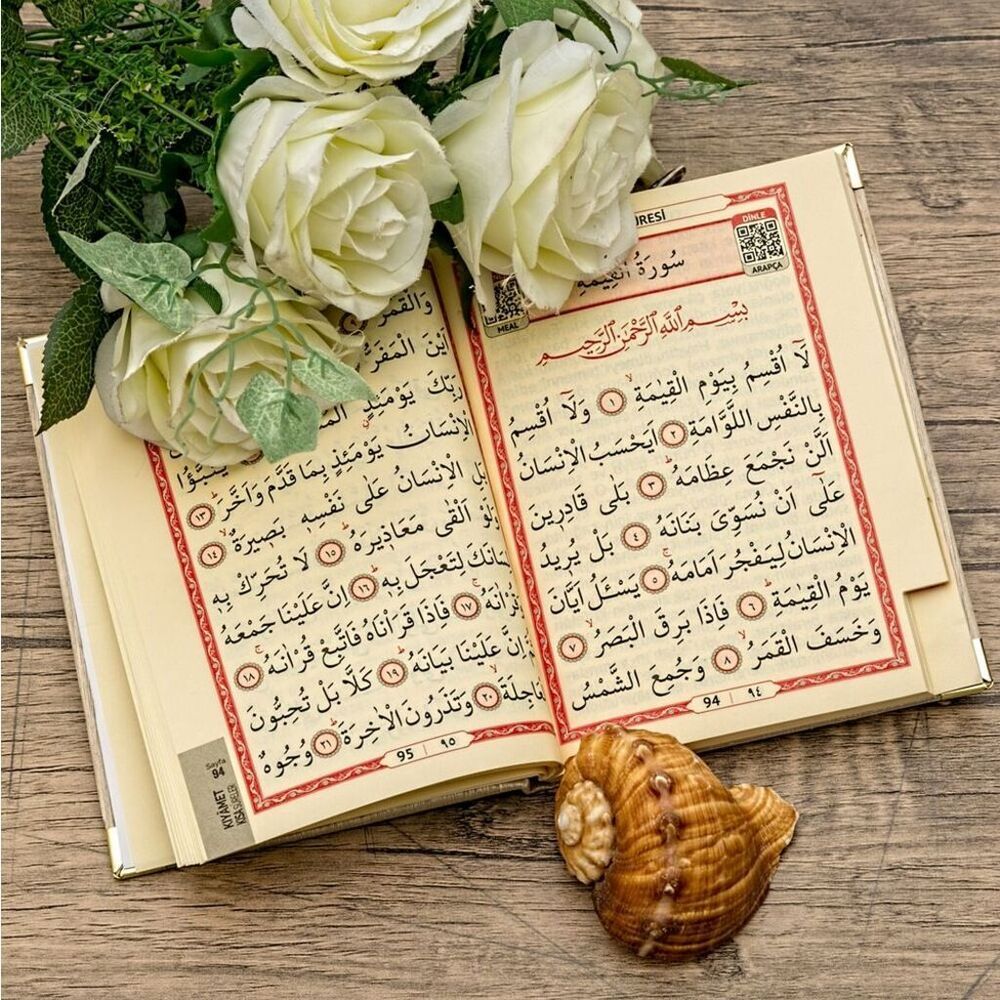 RESİ
DİNLE
سُورَةُ الْقِيٰمَةِ
ARAPÇA
MEAL
بِسْمِ اللّٰهِ الرَّحْمٰنِ الرَّحِيمِ
لَٓا اُقْسِمُ بِيَوْمِ الْقِيٰمَةِۙ ﴿١﴾ وَلَٓا اُقْسِمُ
بِالنَّفْسِ اللَّوَّامَةِ ﴿٢﴾ اَيَحْسَبُ الْاِنْسَانُ
اَلَّنْ نَجْمَعَ عِظَامَهُ ﴿٣﴾ بَلٰى قَادِرِينَ
عَلٰٓى اَنْ نُسَوِّىَ بَنَانَهُ ﴿٤﴾ بَلْ يُرِيدُ
الْاِنْسَانُ لِيَفْجُرَ اَمَامَهُۚ ﴿٥﴾ يَسْـَٔلُ اَيَّانَ
يَوْمُ الْقِيٰمَةِۜ ﴿٦﴾ فَاِذَا بَرِقَ الْبَصَرُۙ ﴿٧﴾
وَخَسَفَ الْقَمَرُۙ ﴿٨﴾ وَجُمِعَ الشَّمْسُ
94 | ٩٤
وَالْقَمَرُ
اَيْنَ الْمَفَرُّ
رَبِّكَ يَوْمَئِذٍ
يُنَبَّؤُا الْاِنْسَانُ يَوْمَئِذٍ بِمَا قَدَّمَ وَاَخَّرَۜ ﴿١٣﴾
بَلِ الْاِنْسَانُ عَلٰى نَفْسِهِ بَصِيرَةٌۙ ﴿١٤﴾
وَلَوْ اَلْقٰى مَعَاذِيرَهُۜ ﴿١٥﴾ لَا تُحَرِّكْ بِهِ
لِسَانَكَ لِتَعْجَلَ بِهِۜ ﴿١٦﴾ اِنَّ عَلَيْنَا جَمْعَهُ
وَقُرْاٰنَهُۚ ﴿١٧﴾ فَاِذَا قَرَاْنَاهُ فَاتَّبِعْ قُرْاٰنَهُۚ ﴿١٨﴾
ثُمَّ اِنَّ عَلَيْنَا بَيَانَهُۜ ﴿١٩﴾ كَلَّا بَلْ تُحِبُّونَ
الْعَاجِلَةَۙ ﴿٢٠﴾ وَتَذَرُونَ الْاٰخِرَةَۜ ﴿٢١﴾ وُجُوهٌ
95 | ٩٥
Sayfa
94
KIYAMET
KISA SURELER